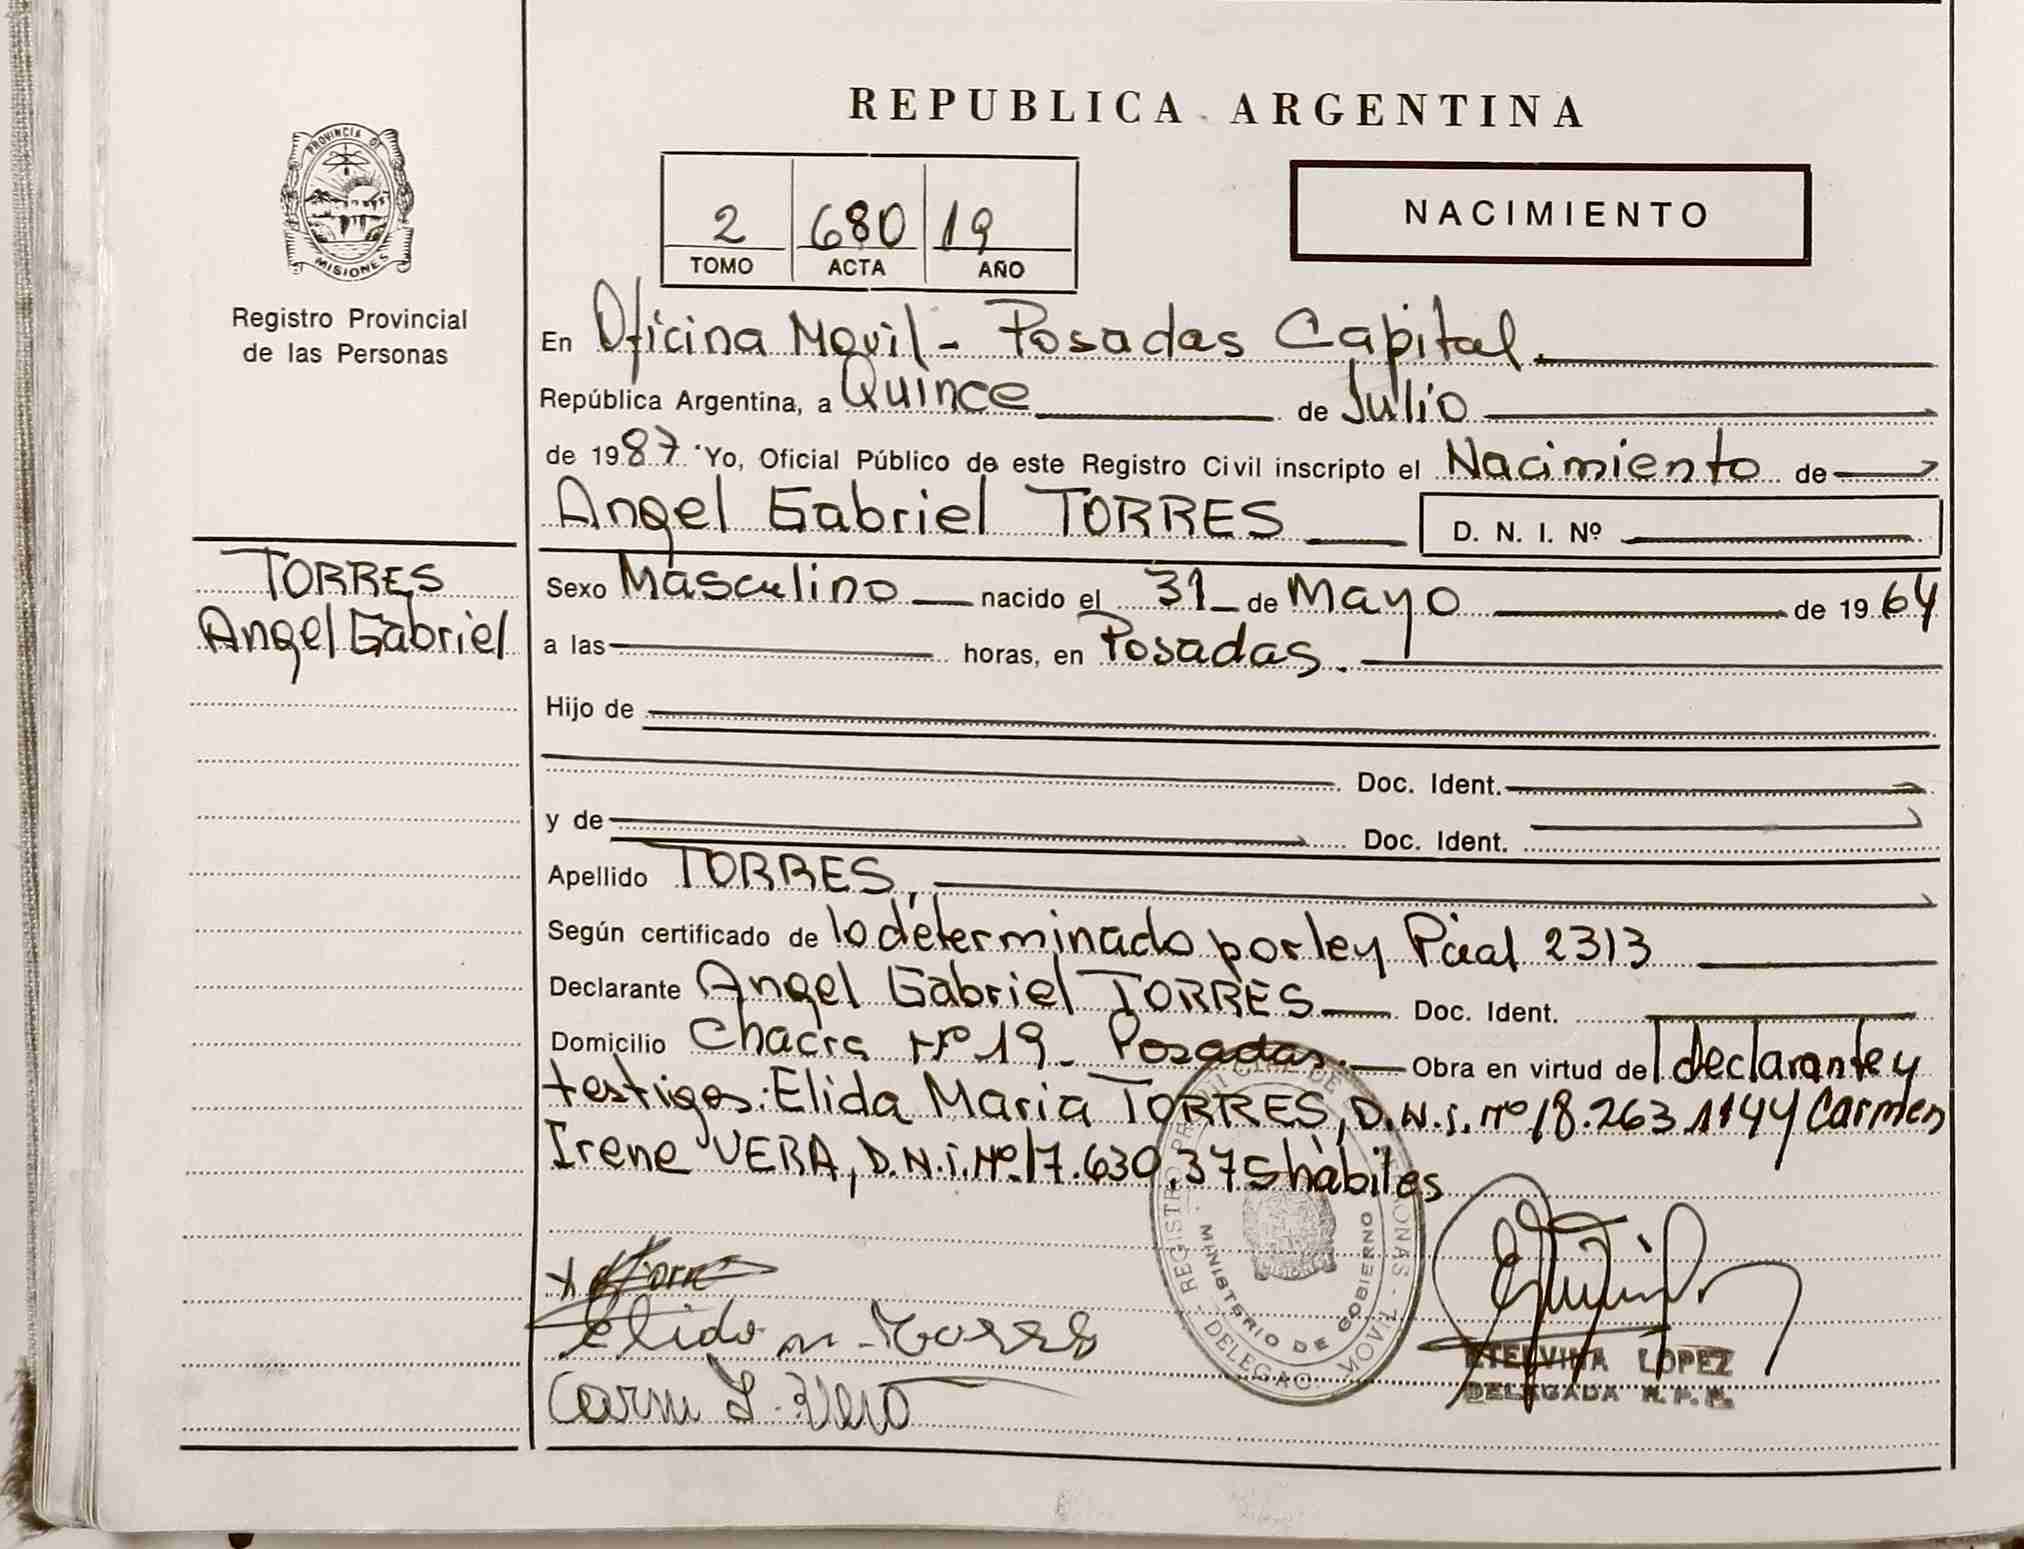 REPUBLICA ARGENTINA
PROVINCIA DE
MISIONES
Registro Provincial
de las Personas
2 680 19
TOMO ACTA AÑO
NACIMIENTO
En Oficina Movil - Posadas Capital.
República Argentina, a Quince de Julio
de 1987 Yo, Oficial Público de este Registro Civil inscripto el Nacimiento de
Angel Gabriel TORRES D. N. I. Nº
TORRES
Angel Gabriel
Sexo Masculino nacido el 31 de Mayo de 1964
a las horas, en Posadas.
Hijo de
Doc. Ident.
y de Doc. Ident.
Apellido TORRES,
Según certificado de lo determinado por ley Pcial 2313
Declarante Angel Gabriel TORRES Doc. Ident.
Domicilio Chacra Nº 19 - Posadas. Obra en virtud del declarante y
testigos: Elida Maria TORRES, D.N.i. Nº 18.263.114 y Carmen
Irene VERA, D.N.i. Nº 17.630.375 hábiles
Elida M. Torres
REGISTRO PROVINCIAL DE
MINISTERIO DE GOBIERNO
DELEGAC. MOVIL
ETELVINA LOPEZ
DELEGADA R. P. P.